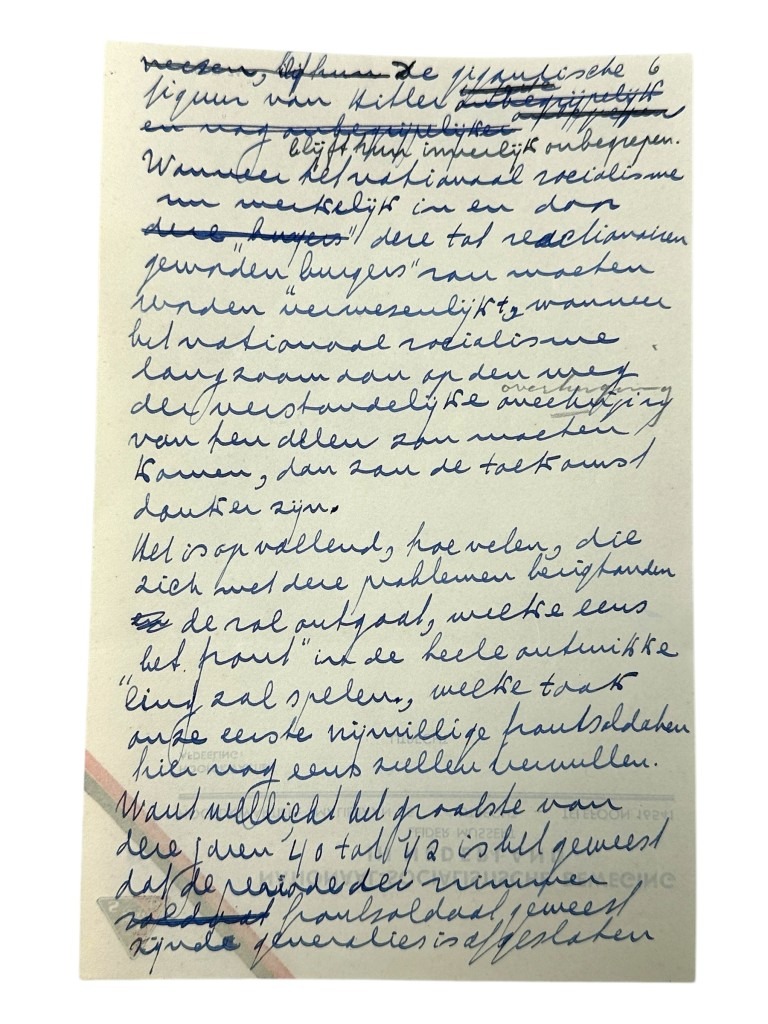 6
vreezen, blijft hun De gigantische
figuur van Hitler onbegrijpelijk
en nog onbegrijpelijker
blijft hun innerlijk onbegrepen.
Wanneer het nationaal socialisme
nu werkelijk in en door
deze "burgers" deze tot reactionairen
geworden burgers" zou moeten
worden "verwezenlijkt", wanneer
het nationaal socialisme
langzaam aan op den weg
overtuiging
der verstandelijke overtuiging
van hen delen zou moeten
komen, dan zou de toekomst
donker zijn.
Het is opvallend, hoe velen, die
zich met deze problemen bezighouden
de rol ontgaat, welke eens
"het front" in de heele ontwikke
"ling zal spelen, welke taak
onze eerste vrijwillige frontsoldaten
hier nog eens zullen vervullen.
Want wellicht het grootste van
deze jaren '40 tot '42 is het geweest
dat de periode der nimmer
soldaat frontsoldaat geweest
zijnde generaties is afgesloten
AFDEELING:
UTRECHT
TELEFOON 16541
LEIDER MUSSERT
IN NEDERLAND
NATIONAAL-SOCIALISTISCHE BEWEGING